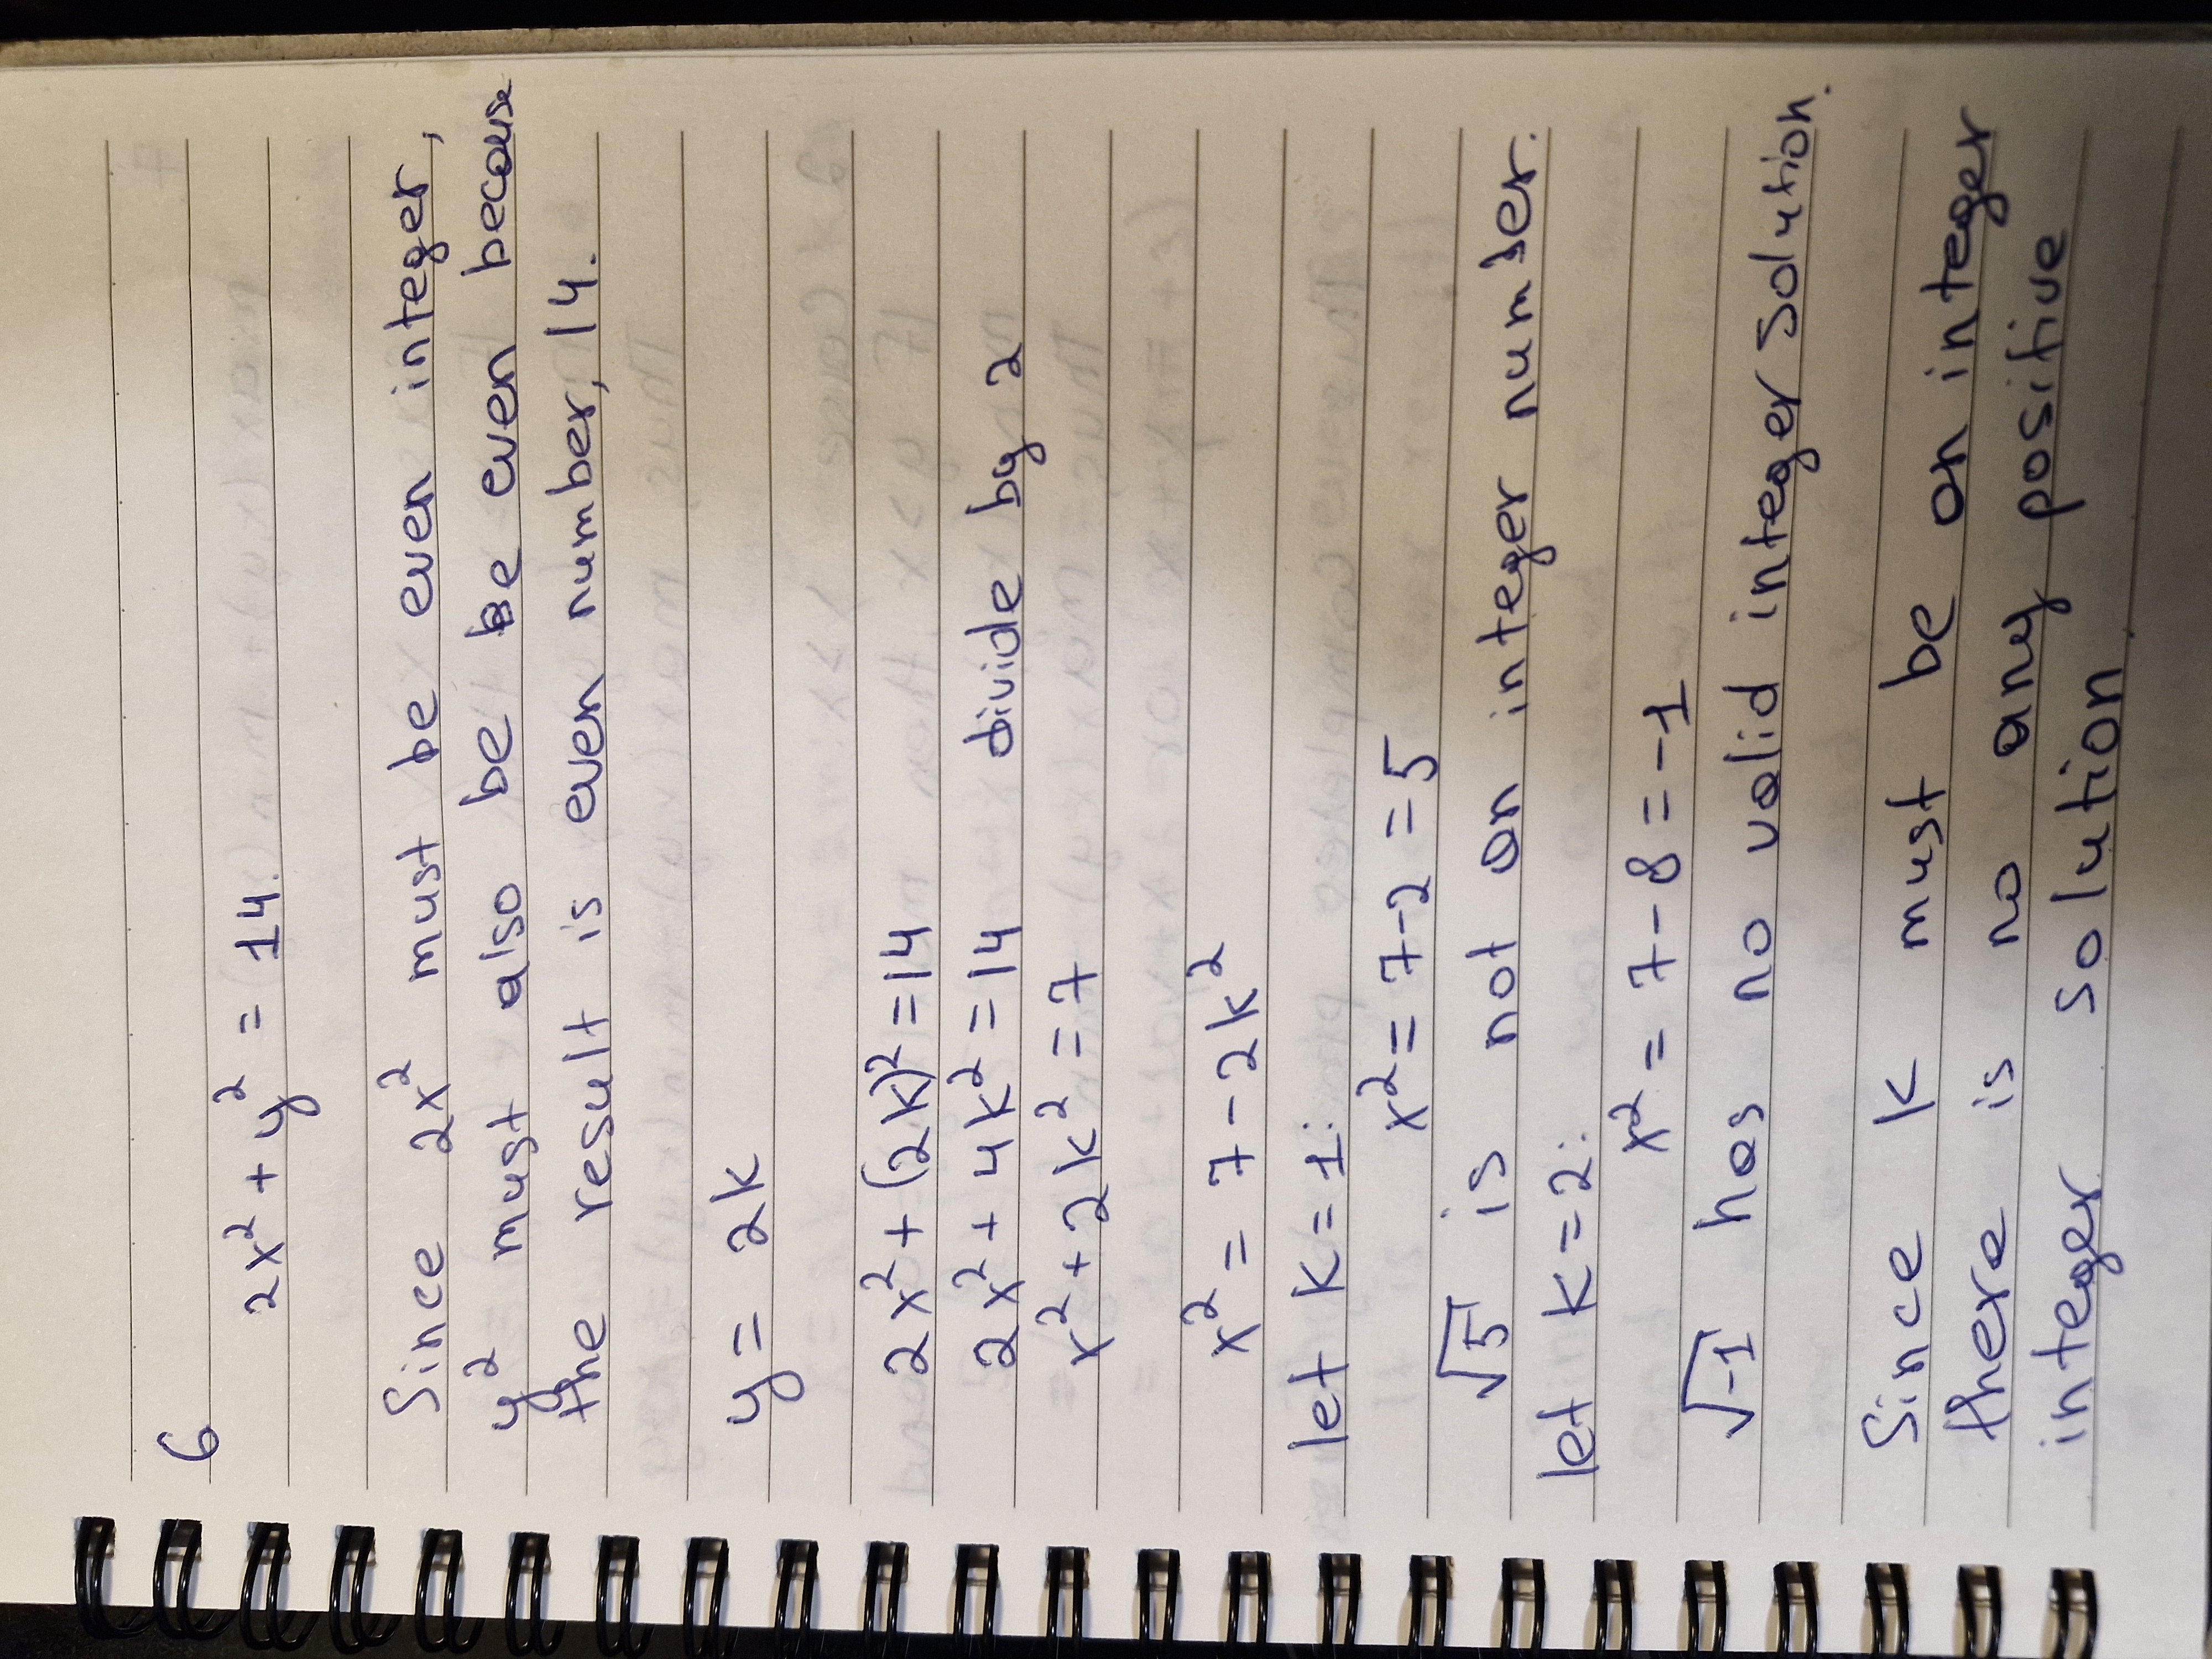 6
2x² + y² = 14.
Since 2x² must be even integer,
y² must also be be even because
the result is even number, 14.
y = 2k
2x² + (2k)² = 14
2x² + 4k² = 14 divide by 2
x² + 2k² = 7
x² = 7 - 2k²
let k = 1:
x² = 7 - 2 = 5
√5 is not an integer number.
let k = 2:
x² = 7 - 8 = -1
√-1 has no valid integer solution.
Since k must be an integer
there is no any positive
integer solution.